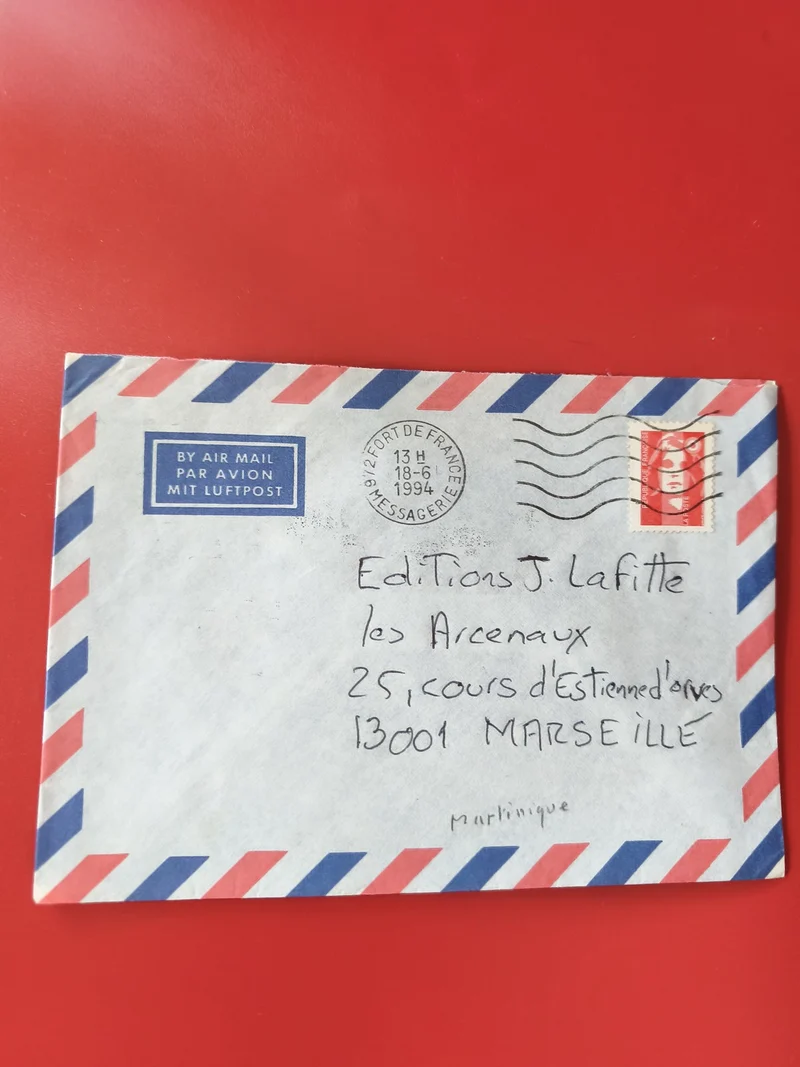 BY AIR MAIL
PAR AVION
MIT LUFTPOST
972 FORT DE FRANCE
13 H
18-6
1994
MESSAGERIE
EdiTions J. Lafitte
les Arcenaux
25, cours d'Estienned'orves
13001 MARSEiLLE
Martinique